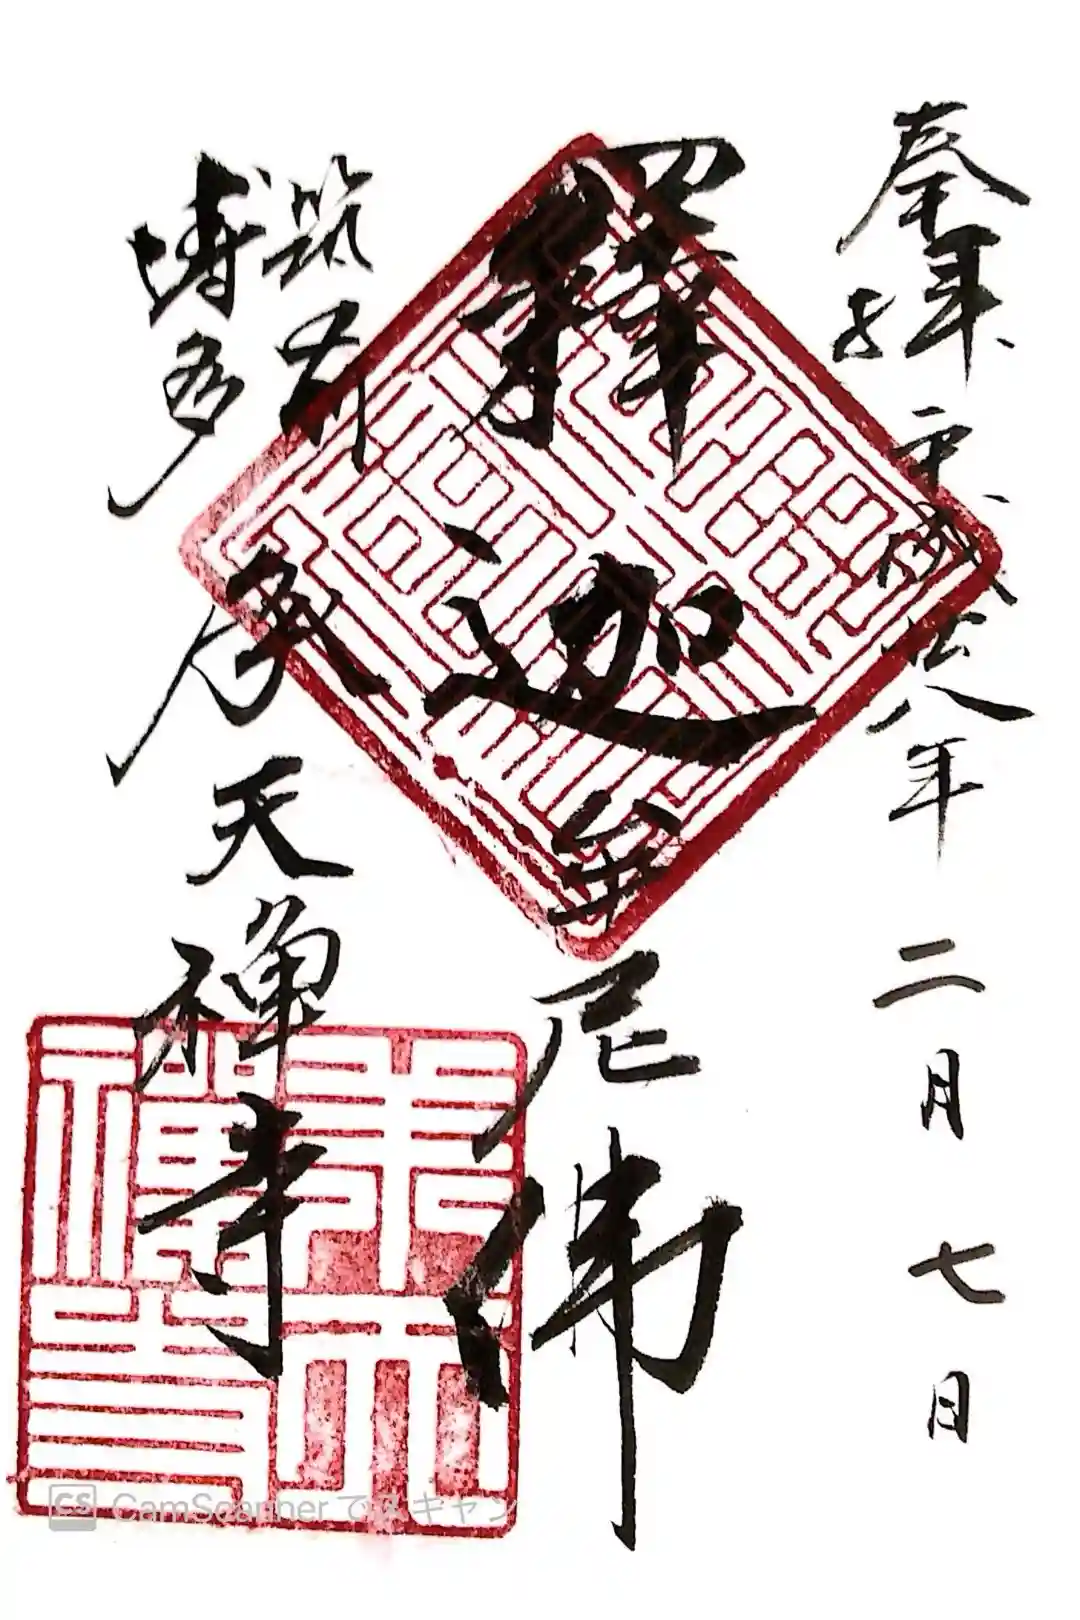 奉拜
平成廿八年二月七日
釋迦牟尼佛
筑前
博多
承天禅寺
承天
禪寺
CS CamScanner でスキャン